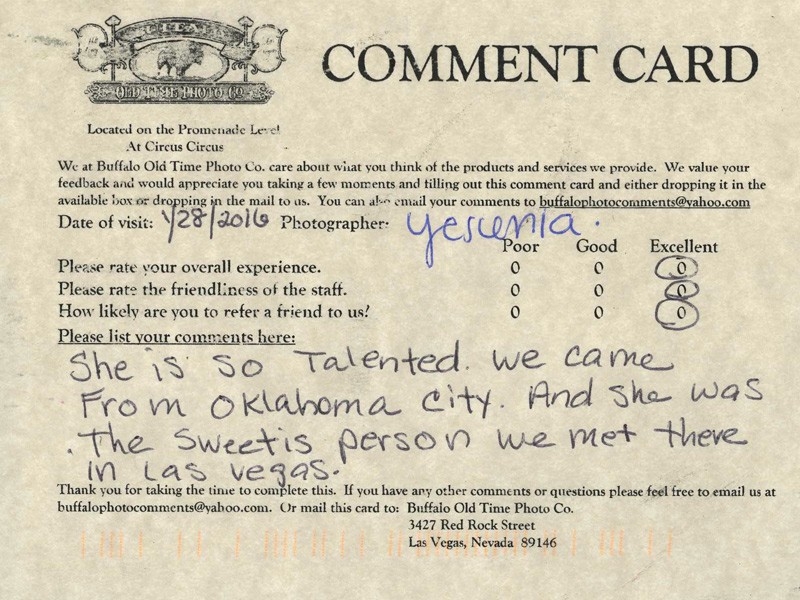 BUFFALO
OLD TIME PHOTO CO.
COMMENT CARD
Located on the Promenade Level
At Circus Circus
We at Buffalo Old Time Photo Co. care about what you think of the products and services we provide. We value your
feedback and would appreciate you taking a few moments and filling out this comment card and either dropping it in the
available box or dropping in the mail to us. You can also email your comments to buffalophotocomments@yahoo.com
Date of visit: 1/28/2016 Photographer: Yesenia.
Poor Good Excellent
Please rate your overall experience. 0 0 0
Please rate the friendliness of the staff. 0 0 0
How likely are you to refer a friend to us? 0 0 0
Please list your comments here:
She is so Talented. we came
From Oklahoma City. And she was
.The Sweetis person we met there
in Las vegas.
Thank you for taking the time to complete this. If you have any other comments or questions please feel free to email us at
buffalophotocomments@yahoo.com. Or mail this card to: Buffalo Old Time Photo Co.
3427 Red Rock Street
Las Vegas, Nevada 89146